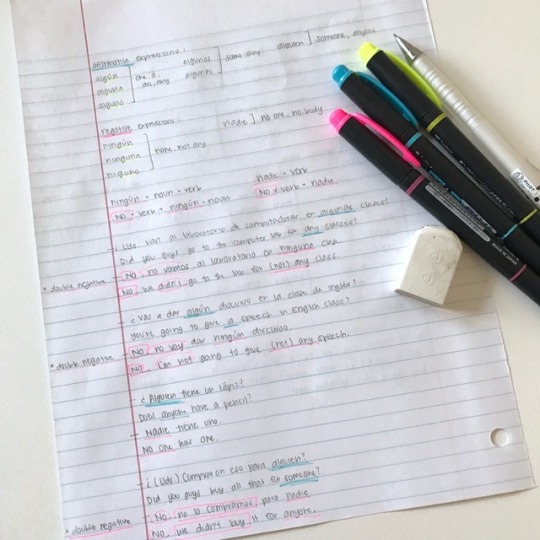 affirmative expressions:
algún
alguna
alguno
one, a,
an, any
algunos
algunas
some, any
alguien ] someone, anyone
negative expressions:
ningún
ninguna
ninguno
none, not any
nadie ] no one, nobody
ningún + noun + verb
nadie + verb
NO + verb + ningún + noun
NO + verb + nadie
¿ Uds. van al laboratorio de computadoras en algunas clases?
Did you guys go to the computer lab for any classes?
- No, no vamos al laboratorio en ninguna clase.
* double negative
No, we didn't go to the lab for (not) any class.
- ¿ Vas a dar algún discurso en la clase de inglés?
you're going to give a speech in English class?
- No, no voy dar ningún discurso.
* double negative
No, I'm not going to give (not) any speech.
- ¿ Alguien tiene un lápiz?
Does anyone have a pencil?
- Nadie tiene uno.
No one has one.
- ¿ (Uds.) Compraron eso para alguien?
Did you guys buy all that for someone?
- No, no lo compramos para nadie.
* double negative
No, we didn't buy it for anyone.